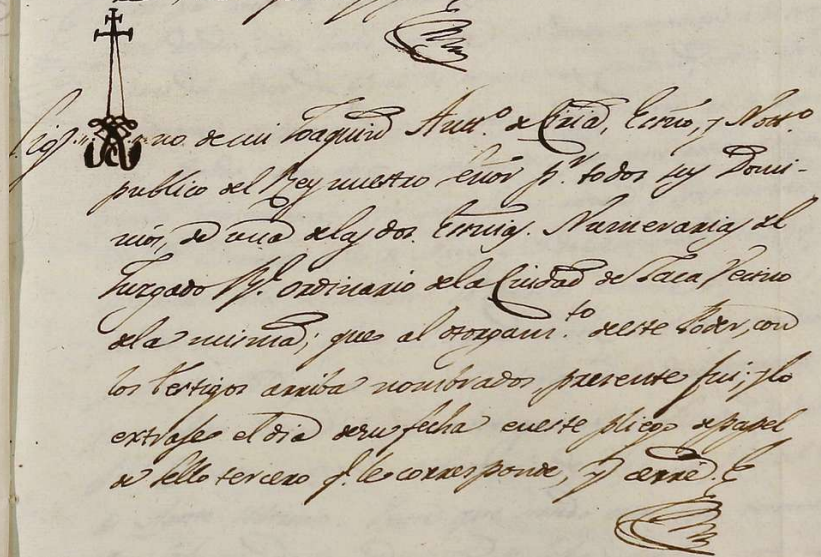 Sig no de mi Joaquin Antt.º de Ciria, Essno, y Nott.º
publico del Rey nuestro señor p.r todos sus Domi-
nios, de una de las dos Essnias. Numerarias del
Juzgado R.l ordinario de la Ciudad de Jaca Vecino
de la misma; que al otorgam.to de este Poder, con
los Testigos arriba nombrados presente fui; y lo
extrage el dia de su fecha en este pliego de papel
de sello tercero q.e le corresponde, y cerré.